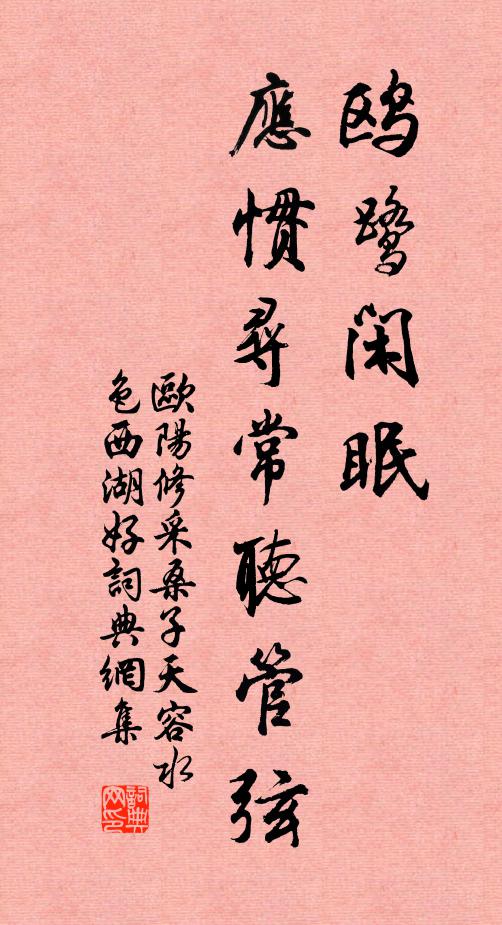 鸥鹭闲眠
應慣尋常聽管弦
歐陽修采桑子天容水
色西湖好詞典網集
詞典网印